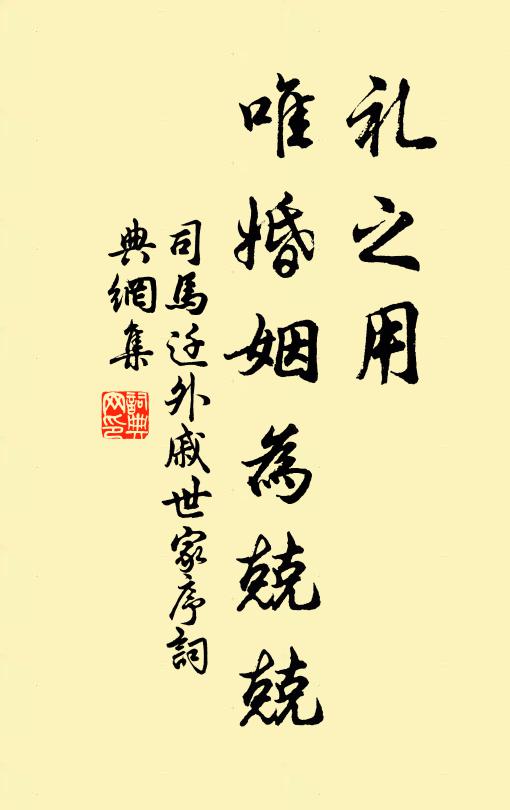 礼之用
唯婚姻為兢兢
司馬迁外戚世家序詞
典網集
詞典网印